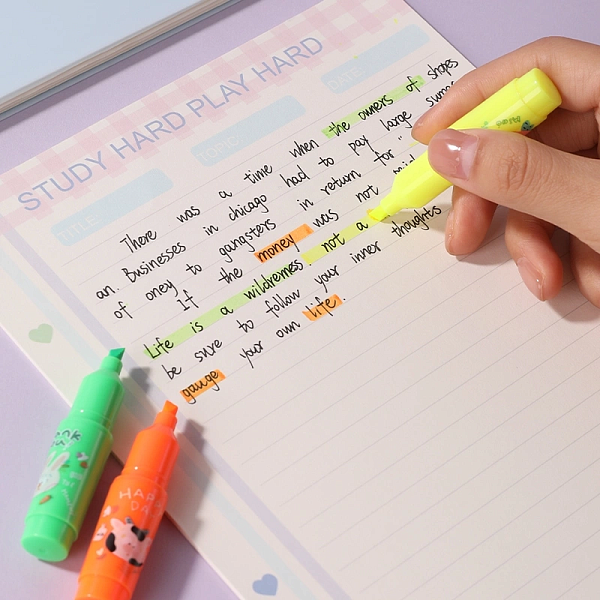 STUDY HARD PLAY HARD
TOPIC
DATE
There was a time when the owners of shops
an. Businesses in chicago had to pay large sums
of oney to gangsters in return for "
If the money was not
Life is a wildreness. not a
be sure to follow your inner thoughts
gauge your own life.
HAP
DA